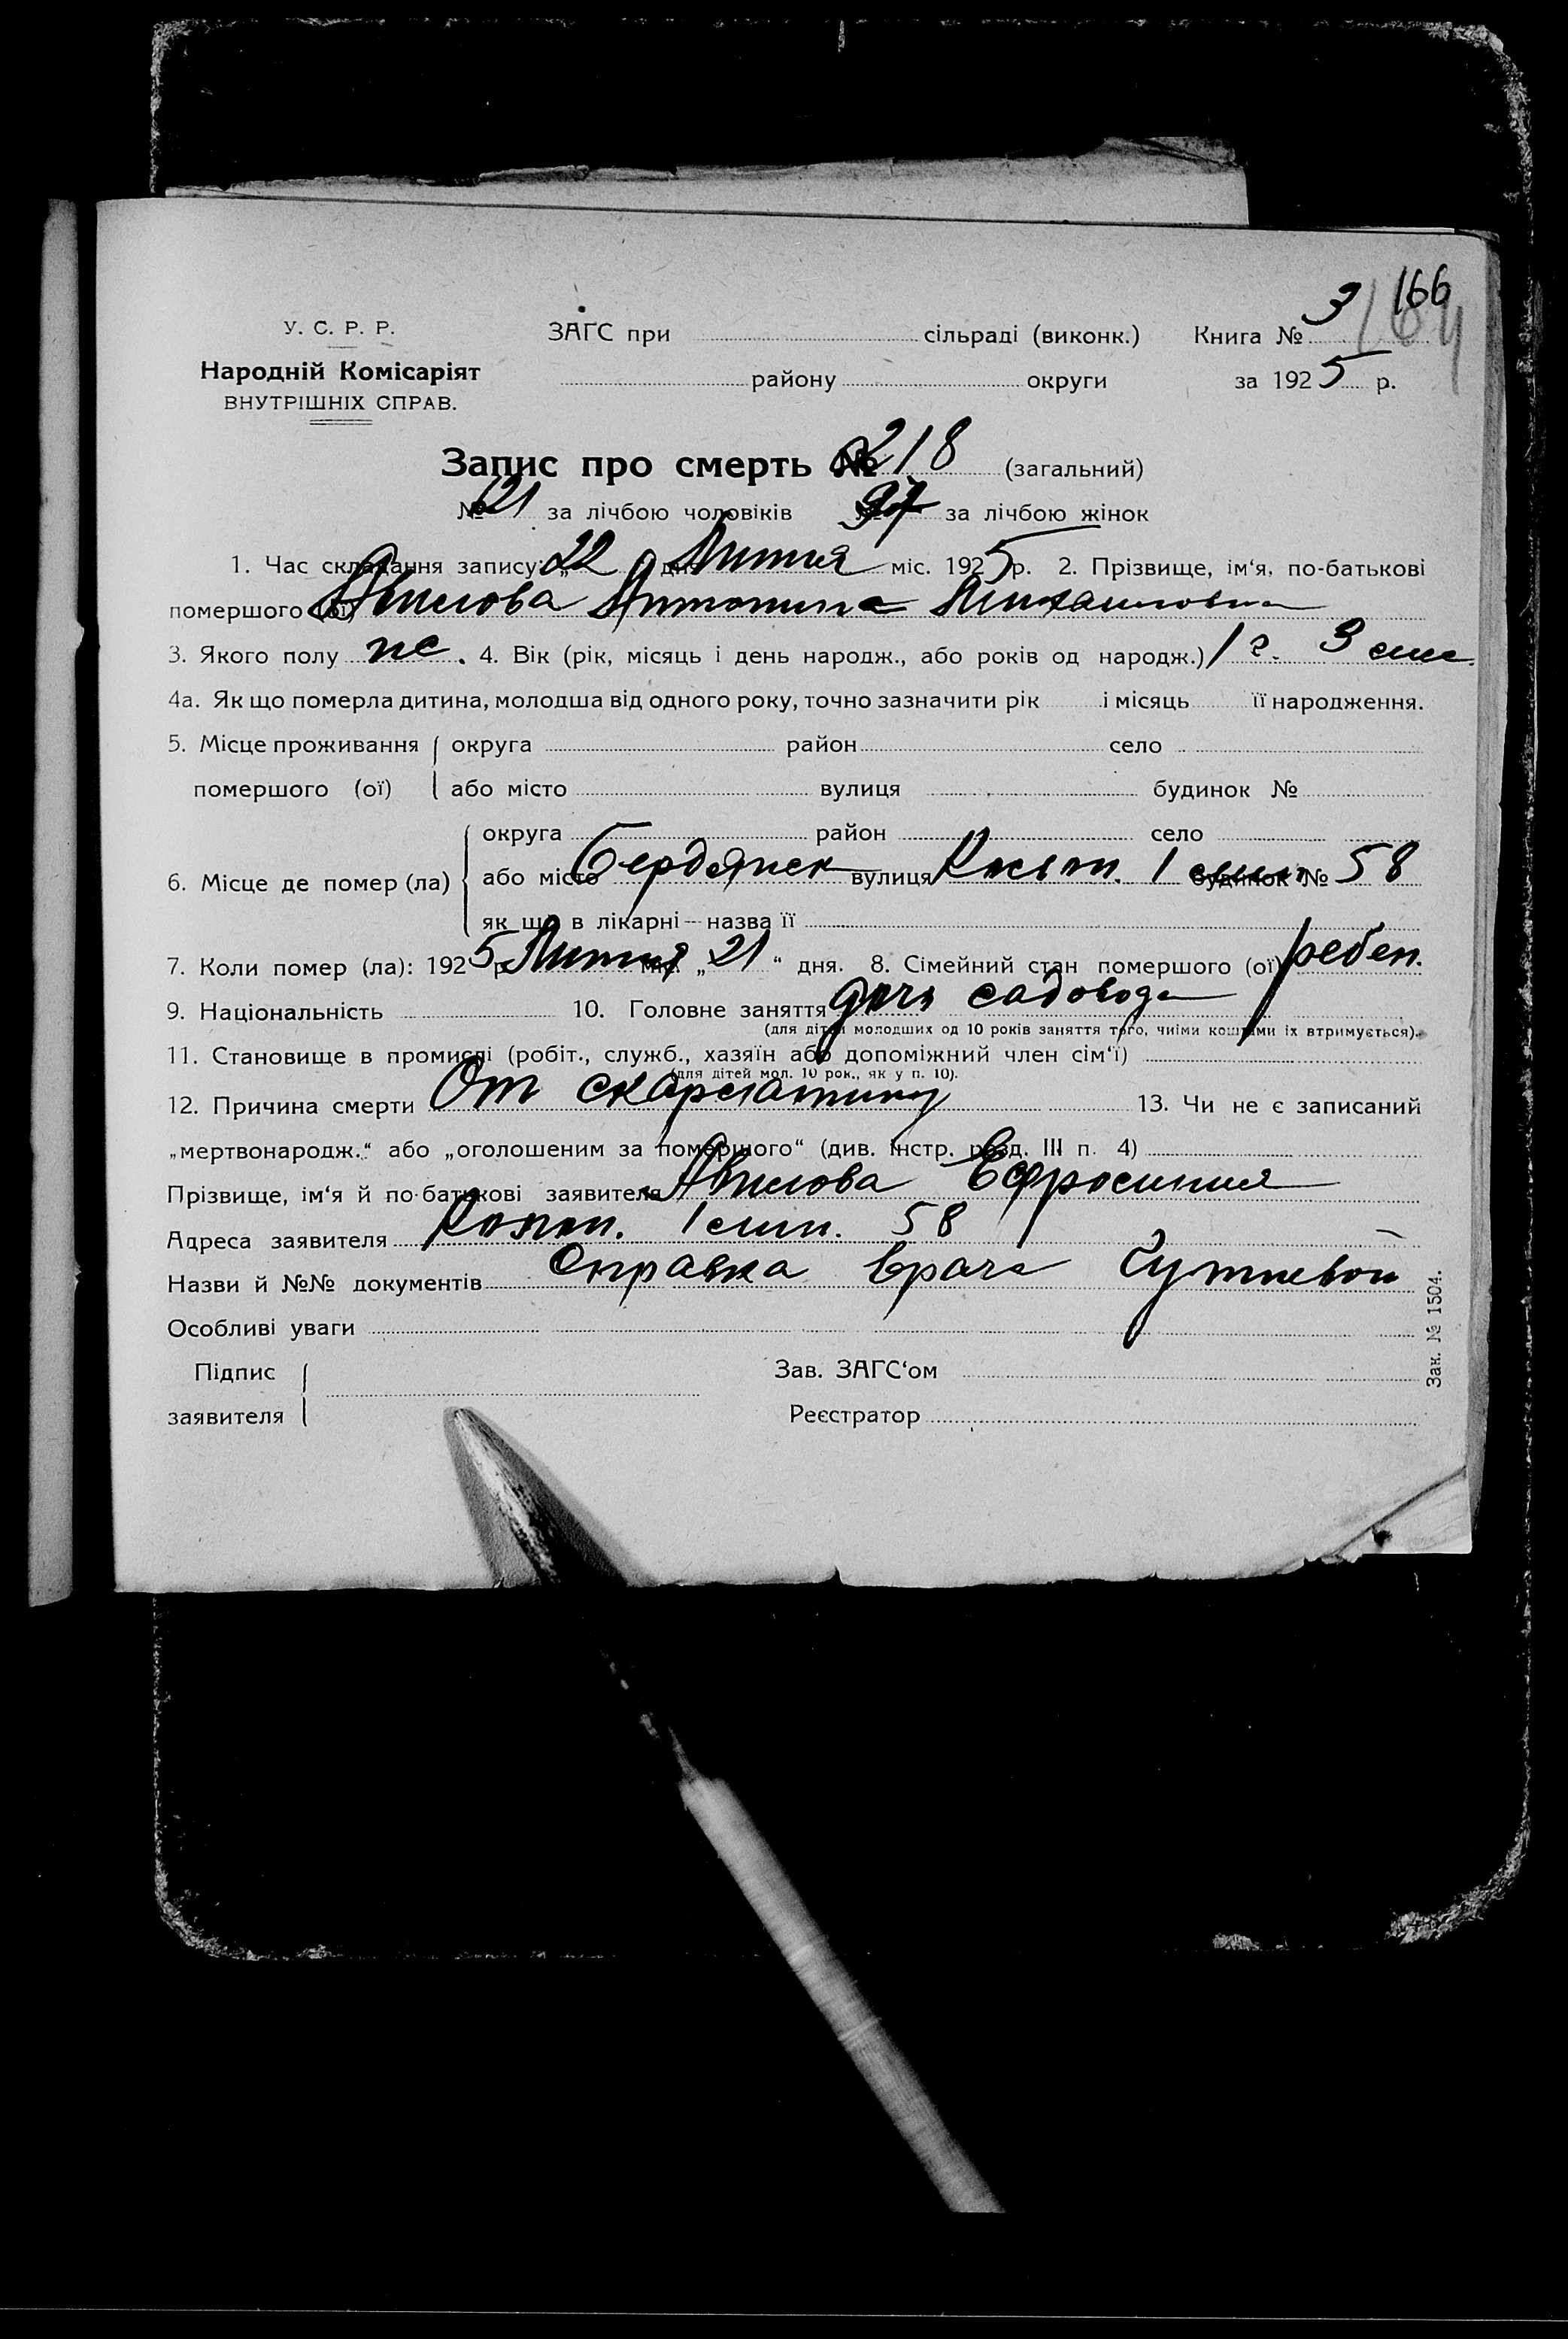 166
3 164
У. С. Р. Р. ЗАГС при сільраді (виконк.) Книга №
Народній Комісаріят району округи за 1925 р.
ВНУТРІШНІХ СПРАВ.
Запис про смерть № 218 (загальний)
№ 121 за лічбою чоловіків № 97 за лічбою жінок
1. Час складання запису: „22 дня Лютня міс. 1925 р. 2. Прізвище, ім'я, по-батькові
помершого (ої) Авилова Антонина Михайловна
3. Якого полу ж. 4. Вік (рік, місяць і день народж., або років од народж.) 1 г. 3 мес.
4а. Як що померла дитина, молодша від одного року, точно зазначити рік і місяць її народження.
5. Місце проживання округа район село
помершого (ої) або місто вулиця будинок №
округа район село
6. Місце де помер (ла) або місто Бердянск вулиця 1 будинок № 58
як що в лікарні — назва її
7. Коли помер (ла): 1925 р. Лютня міс. „21“ дня. 8. Сімейний стан помершого (ої) ребен.
9. Національність 10. Головне заняття дочь садовода
(для дітей молодших од 10 років заняття того, чиїми коштами їх втримується).
11. Становище в промислі (робіт., служб., хазяїн або допоміжний член сім'ї)
(для дітей мол. 10 рок., як у п. 10).
12. Причина смерти От скарлатины 13. Чи не є записаний
„мертвонародж.“ або „оголошеним за помершого“ (див. Інстр. розд. III п. 4)
Прізвище, ім'я й по-батькові заявителя Авилова Ефросиния
Адреса заявителя 1 58
Назви й №№ документів Справка врача
Особливі уваги
Підпис Зав. ЗАГС'ом
заявителя Реєстратор
Зак. № 1504.